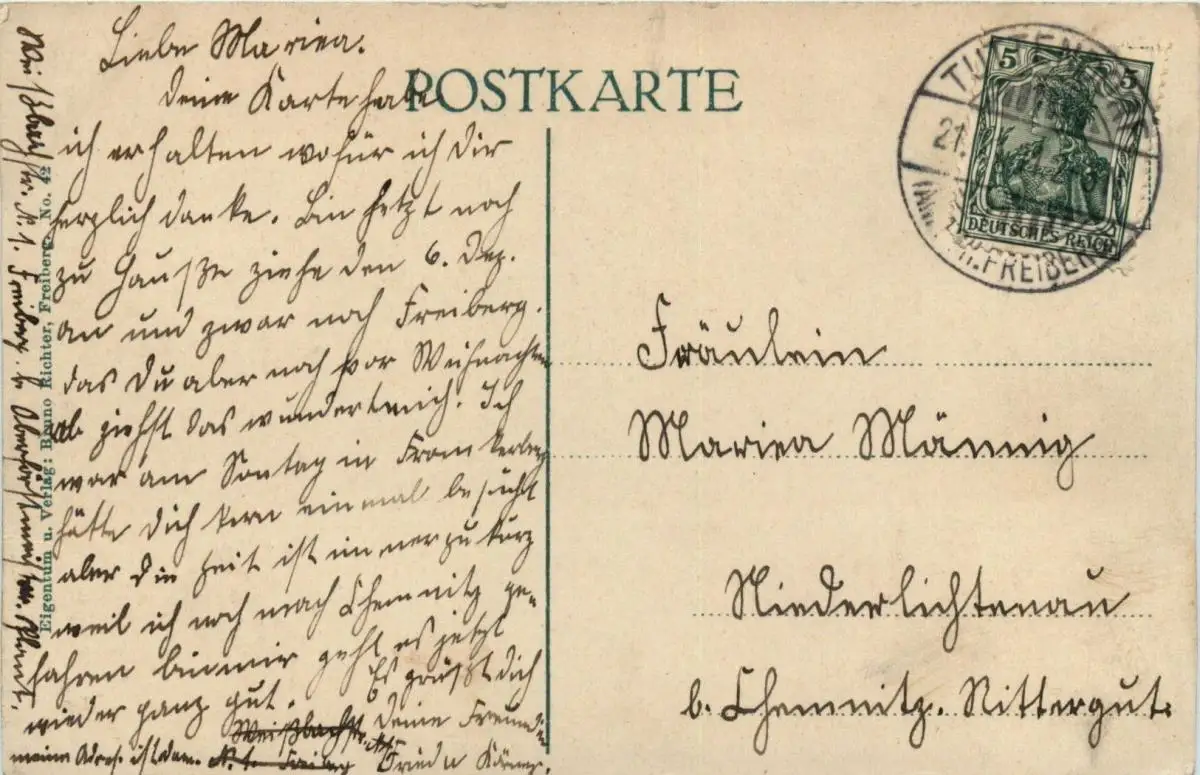 Liebe Mariea.
Deine Karte habe
ich erhalten wofür ich dir
herzlich danke. Bin jetzt noch
zu Hauße ziehe den 6. Dez.
an und zwar nach Freiberg.
das Du aber noch vor Weihnachten
ab ziehst das wundert mich. Ich
war am Sontag in
hätte dich gern einmal besucht
aber die Zeit ist immer zu kurz
weil ich noch nach Chemnitz ge-
fahren bin mir geht es jetzt
wieder ganz gut. Es grüßt dich
deine Freundin
meine Adres. ist dan. Weißbachstr.
N. 1. Freiberg
Weißbachstr. N. 1. Freiberg b.
Eigentum u. Verlag: Bruno Richter, Freiberg. No. 42
POSTKARTE
5 5
DEUTSCHES REICH
21.
FREIBERG
Fräulein
Mariea Männig
Niederlichtenau
b. Chemnitz. Rittergut.